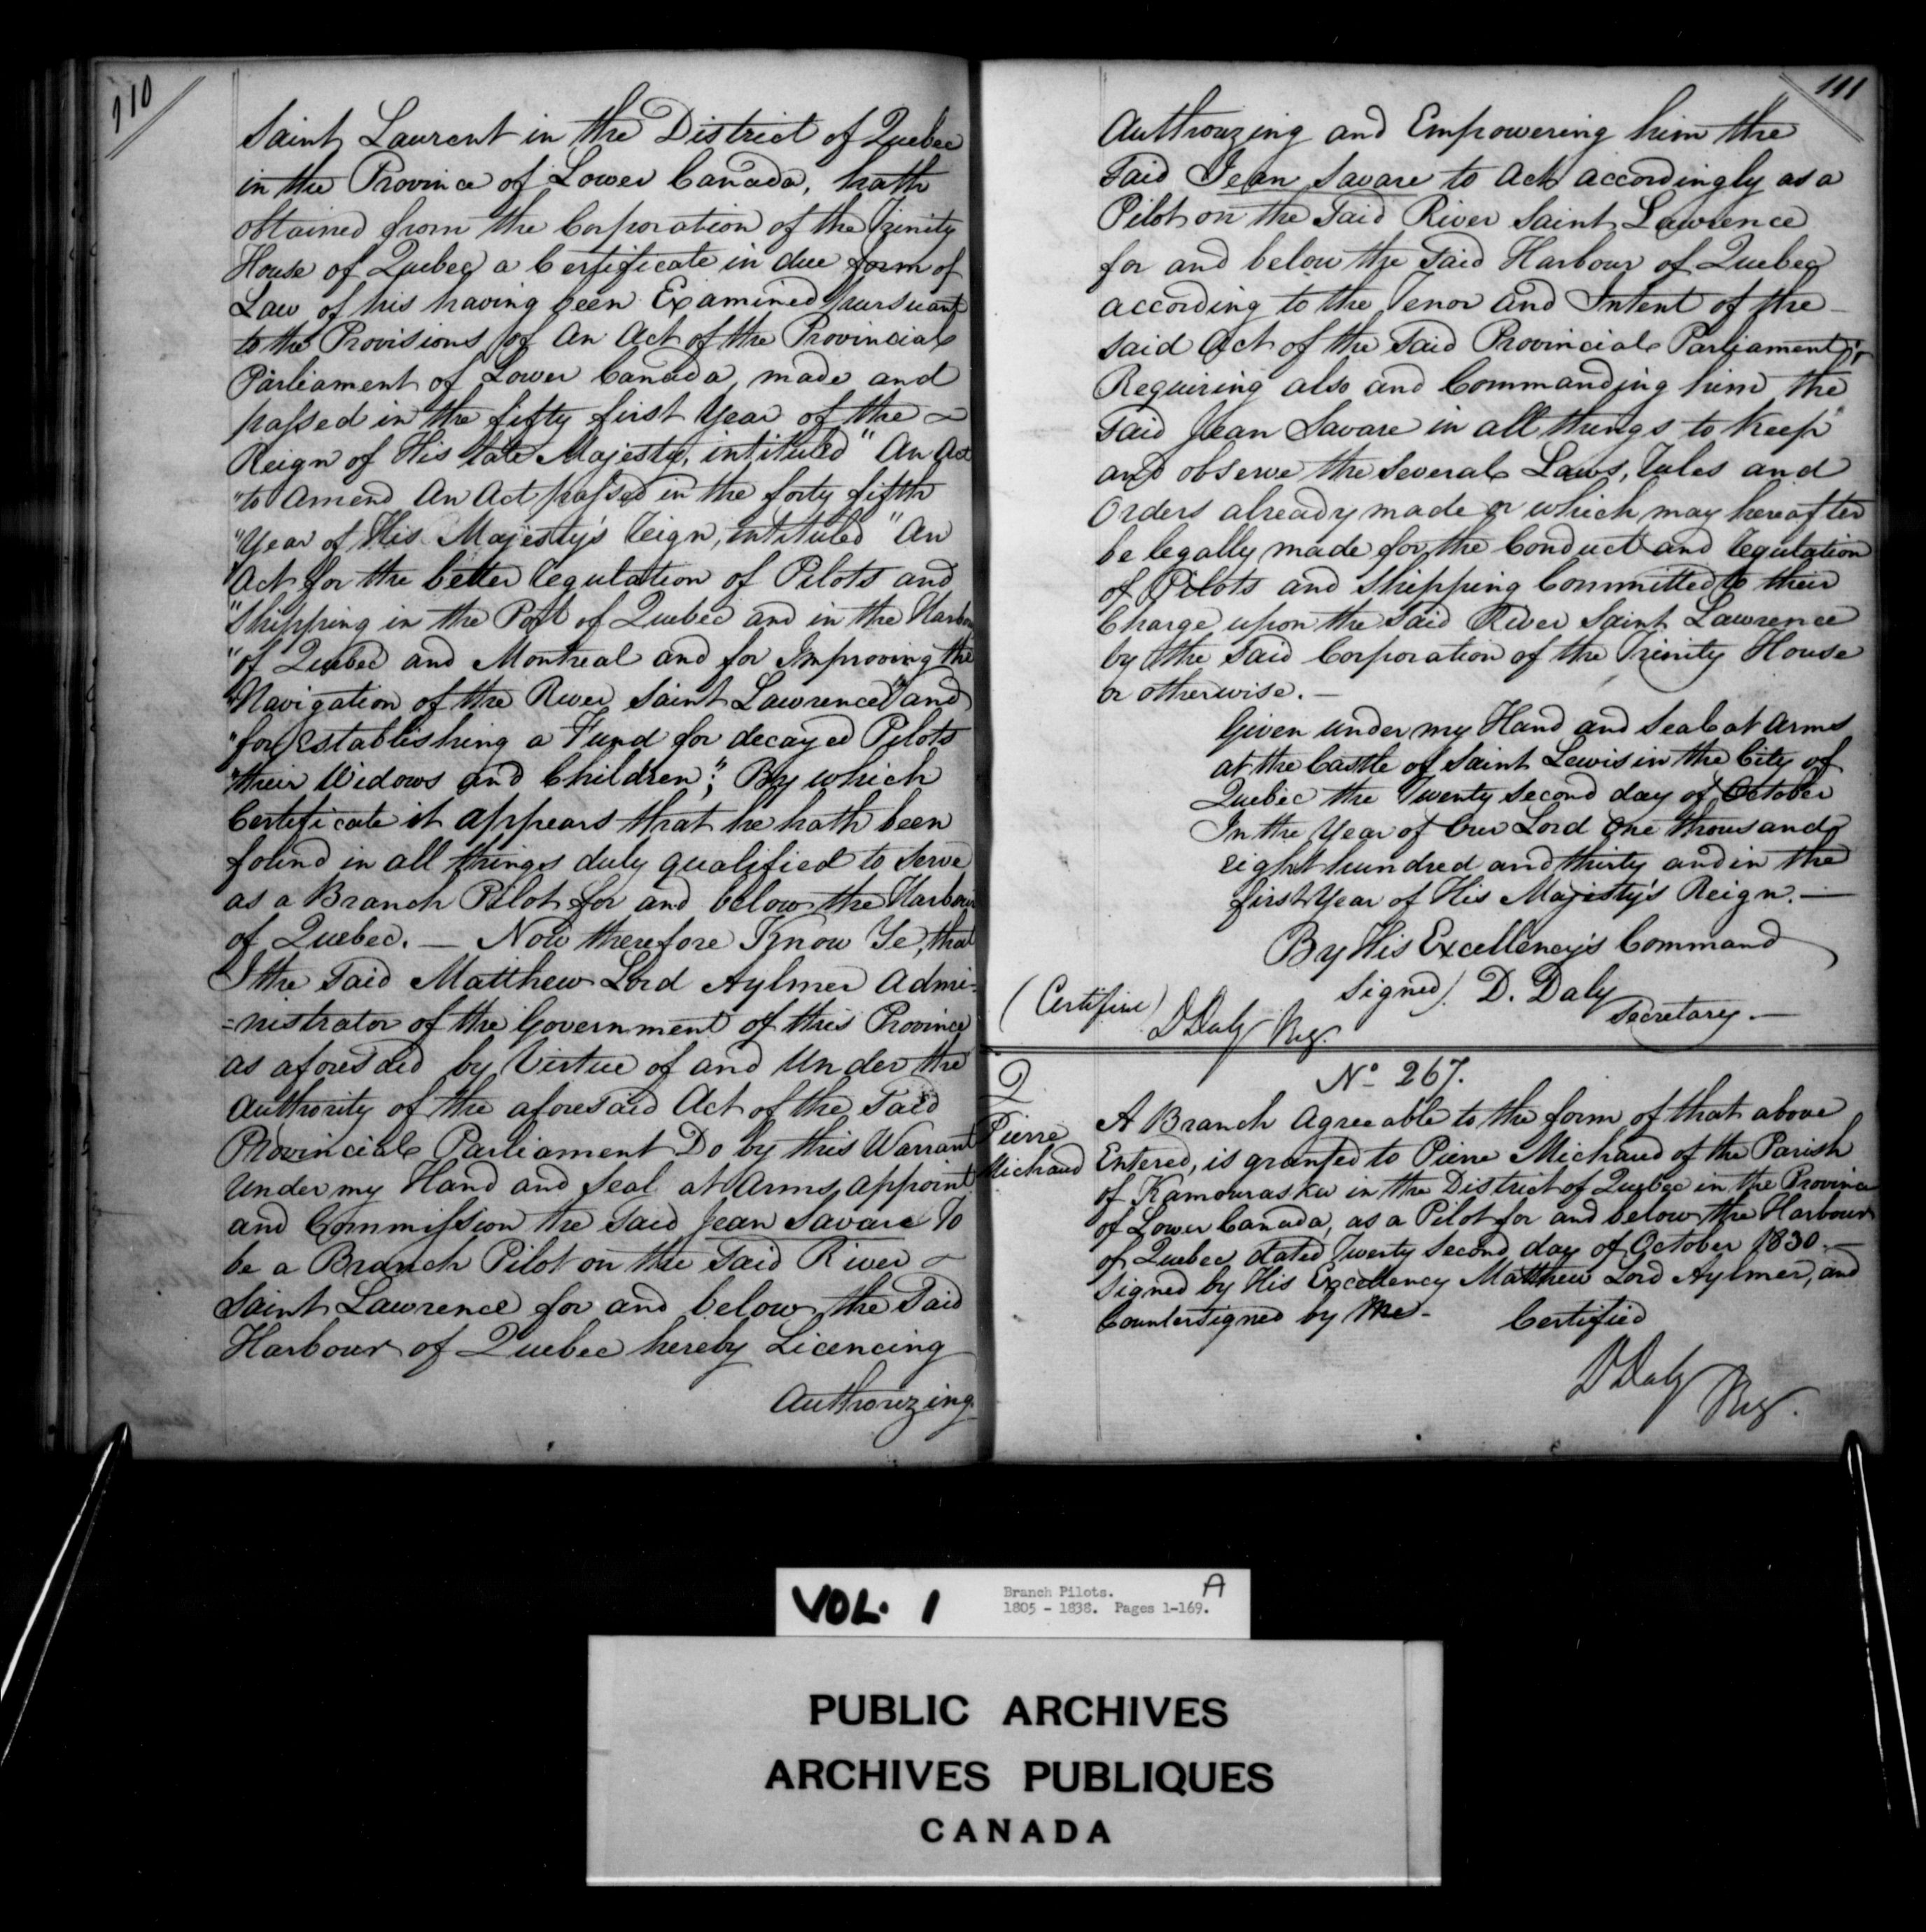 110
Saint Laurent in the District of Quebec
in the Province of Lower Canada, hath
obtained from the Corporation of the Trinity
House of Quebec a Certificate in due form of
Law of his having been Examined pursuant
to the Provisions of An Act of the Provincial
Parliament of Lower Canada, made and
passed in the fifty first Year of the
Reign of His late Majesty, intituled "An Act
"to Amend An Act passed in the forty fifth
"Year of His Majesty's Reign, intituled "An
"Act for the better Regulation of Pilots and
"Shipping in the Port of Quebec and in the Harbour
"of Quebec and Montreal and for Improving the
"Navigation of the River Saint Lawrence" and
"for Establishing a Fund for decayed Pilots
"their Widows and Children"; By which
Certificate it appears that he hath been
found in all things duly qualified to Serve
as a Branch Pilot for and below the Harbour
of Quebec. — Now therefore Know Ye, that
I the Said Matthew Lord Aylmer Admi-
=nistrator of the Government of this Province
as aforesaid by Virtue of and Under the
Authority of the aforesaid Act of the Said
Provincial Parliament Do by this Warrant
Under my Hand and Seal at Arms, appoint
and Commission the Said Jean Savare To
be a Branch Pilot on the Said River
Saint Lawrence for and below the Said
Harbour of Quebec hereby Licencing
Authorizing
111
Authorizing and Empowering him the
Said Jean Savare to Act accordingly as a
Pilot on the Said River Saint Lawrence
for and below the Said Harbour of Quebec
according to the Tenor and Intent of the —
Said Act of the Said Provincial Parliament;
Requiring also and Commanding him the
Said Jean Savare in all things to Keep
and observe the Several Laws, Rules and
Orders already made or which may hereafter
be legally made for the Conduct and Regulation
of Pilots and Shipping Committed to their
Charge upon the Said River Saint Lawrence
by the Said Corporation of the Trinity House
or otherwise. —
Given under my Hand and Seal at Arms
at the Castle of Saint Lewis in the City of
Quebec the Twenty Second day of October
In the Year of Our Lord One thousand
eight hundred and thirty and in the
first Year of His Majesty's Reign. —
By His Excellency's Command
Signed). D. Daly
Secretary. —
(Certified)
D Daly Reg.
No 267.
2
Pierre
Michaud
A Branch Agreeable to the form of that above
Entered, is granted to Pierre Michaud of the Parish
of Kamouraska in the District of Quebec in the Province
of Lower Canada, as a Pilot for and below the Harbour
of Quebec dated Twenty Second day of October 1830. —
Signed by His Excellency Matthew Lord Aylmer, and
Countersigned by Me - Certified
D Daly
Reg.
VOL. 1
Branch Pilots. A
1805 - 1838. Pages 1-169.
PUBLIC ARCHIVES
ARCHIVES PUBLIQUES
CANADA